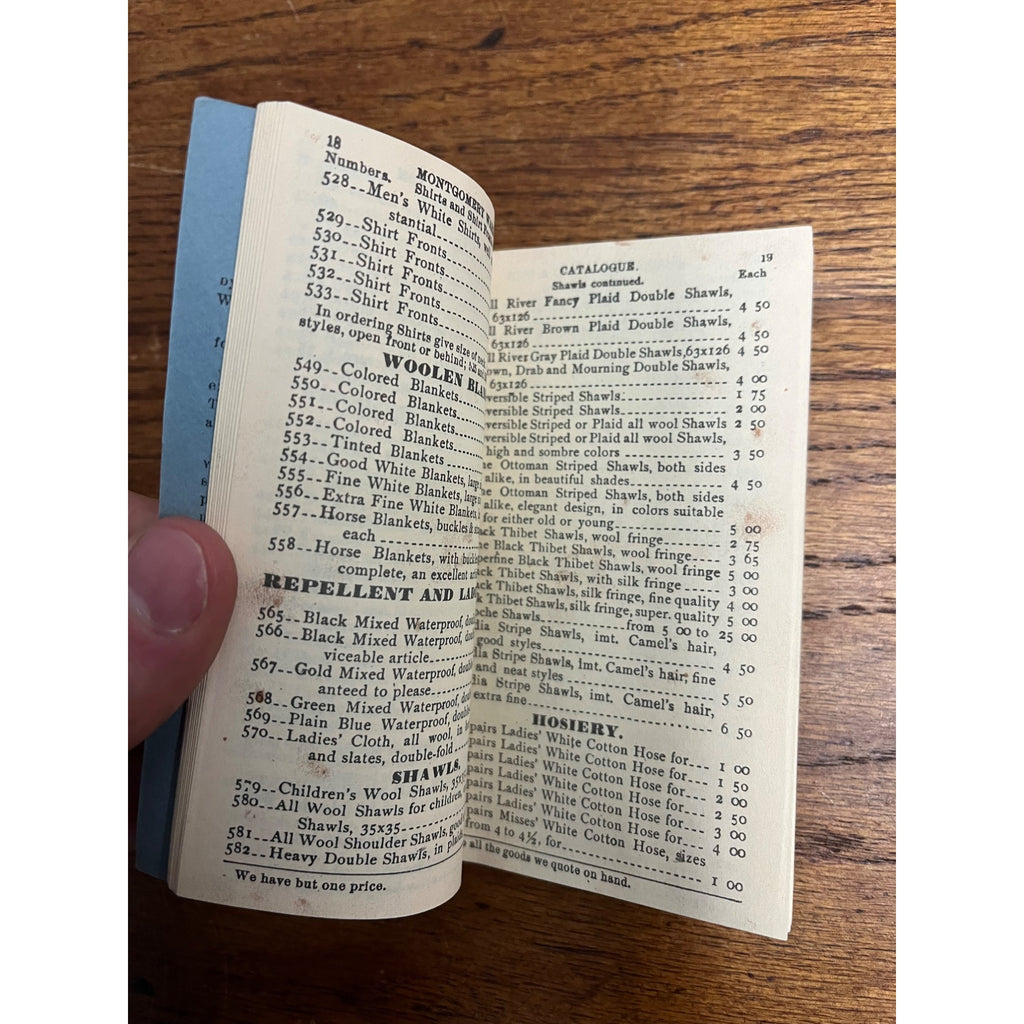 18
MONTGOMERY
Numbers. Shirts and Shirt
528--Men's White Shirts,
stantial
529--Shirt Fronts
530--Shirt Fronts
531--Shirt Fronts
532--Shirt Fronts
533--Shirt Fronts
In ordering Shirts give size of
styles, open front or behind;
WOOLEN
549--Colored Blankets
550--Colored Blankets
551--Colored Blankets
552--Colored Blankets
553--Tinted Blankets
554--Good White Blankets,
555--Fine White Blankets,
556--Extra Fine White Blankets,
557--Horse Blankets, buckles &
each
558--Horse Blankets, with
complete, an excellent
REPELLENT AND
565--Black Mixed Waterproof,
566--Black Mixed Waterproof,
viceable article
567--Gold Mixed Waterproof,
anteed to please
568--Green Mixed Waterproof,
569--Plain Blue Waterproof,
570--Ladies' Cloth, all wool, in
and slates, double-fold
SHAWLS,
579--Children's Wool Shawls,
580--All Wool Shawls for children,
Shawls, 35x35
581--All Wool Shoulder Shawls,
582--Heavy Double Shawls, in
We have but one price.
CATALOGUE. 19
Shawls continued. Each
River Fancy Plaid Double Shawls,
63x126 4 50
River Brown Plaid Double Shawls,
63x126 4 50
River Gray Plaid Double Shawls, 63x126 4 50
Drab and Mourning Double Shawls,
63x126 4 00
Striped Shawls 1 75
Striped Shawls 2 00
Striped or Plaid all wool Shawls 2 50
Striped or Plaid all wool Shawls,
high and sombre colors 3 50
Ottoman Striped Shawls, both sides
alike, in beautiful shades 4 50
Ottoman Striped Shawls, both sides
alike, elegant design, in colors suitable
for either old or young 5 00
Thibet Shawls, wool fringe 2 75
Black Thibet Shawls, wool fringe 3 65
Black Thibet Shawls, wool fringe 5 00
Thibet Shawls, with silk fringe 3 00
Thibet Shawls, silk fringe, fine quality 4 00
Thibet Shawls, silk fringe, super. quality 5 00
Shawls from 5 00 to 25 00
Stripe Shawls, imt. Camel's hair,
good styles 4 50
Stripe Shawls, imt. Camel's hair, fine
and neat styles 5 50
Stripe Shawls, imt. Camel's hair,
extra fine 6 50
HOSIERY.
pairs Ladies' White Cotton Hose for 1 00
pairs Ladies' White Cotton Hose for 1 50
pairs Ladies' White Cotton Hose for 2 00
pairs Ladies' White Cotton Hose for 2 50
pairs Ladies' White Cotton Hose for 3 00
pairs Ladies' White Cotton Hose for 4 00
pairs Misses' White Cotton Hose, sizes
from 4 to 4½, for 1 00
all the goods we quote on hand.